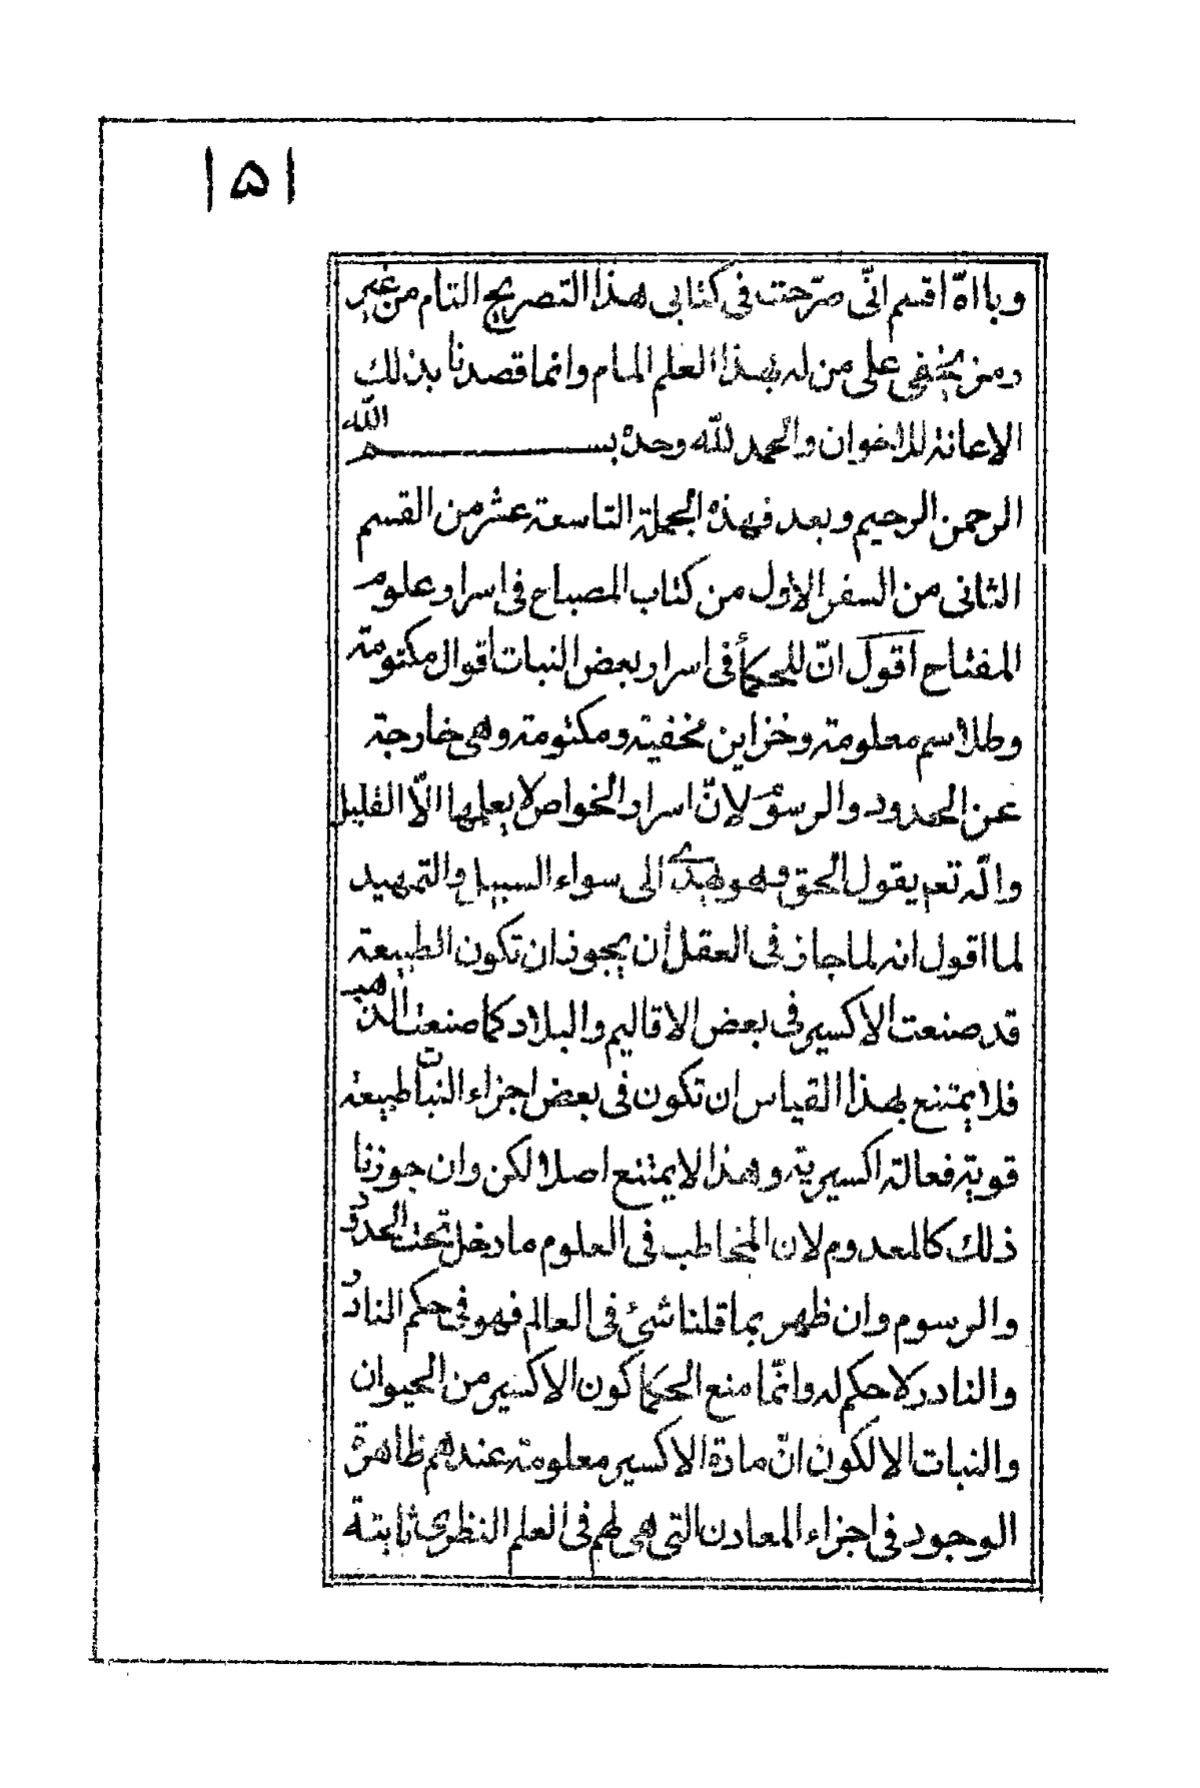 ١٥١
وباالله اقسم انّى صرّحت فى كتابى هذا التصريح التام من غير
رمز يخفى على من له بهذا العلم المام وانما قصدنا بذلك
الاعانة للاخوان والحمد لله وحده بسم الله
الرحمن الرحيم وبعد فهذه الجملة التاسعة عشر من القسم
الثانى من السفر الاول من كتاب المصباح فى اسرار علوم
المفتاح اقول انّ للحكمأ فى اسرار بعض النبات اقوال مكتومة
وطلاسم معلومة وخزاين مخفية ومكتومة وهى خارجة
عن الحدود والرسوم لانّ اسرار الخواص لا يعلمها الّا القليل
والله تعم يقول الحق وهو يهدى الى سواء السبيل والتمهيد
لما اقول انه لما جاز فى العقل أن يجوز ان تكون الطبيعة
قد صنعت الاكسير فى بعض الاقاليم والبلاد كما صنعت الذهب
فلا يمتنع بهذا القياس ان تكون فى بعض اجزاء النبات طبيعة
قوية فعالة اكسيرية وهذا لا يمتنع اصلا لكن وان جوزنا
ذلك كالمعدوم لان المخاطب فى العلوم ما دخل تحت الحدود
والرسوم وان ظهر بما قلنا شئ فى العالم فهو فى حكم النادر
والنادر لا حكم له وانّما منع الحكما كون الاكسير من الحيوان
والنبات الا لكون انّ مادة الاكسير معلومة عندهم ظاهرة
الوجود فى اجزاء المعادن التى هى لهم فى العلم النظرى ثابتة